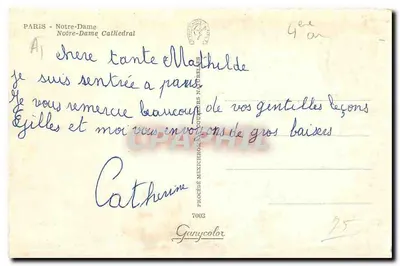 PARIS - Notre-Dame
Notre-Dame Cathedral
chere tante Mathilde
je suis rentrée a paris.
Je vous remercie beaucoup de vos gentilles leçons
Gilles et moi vous envoyons de gros baisers
Catherine
7003
Ganycolor
75